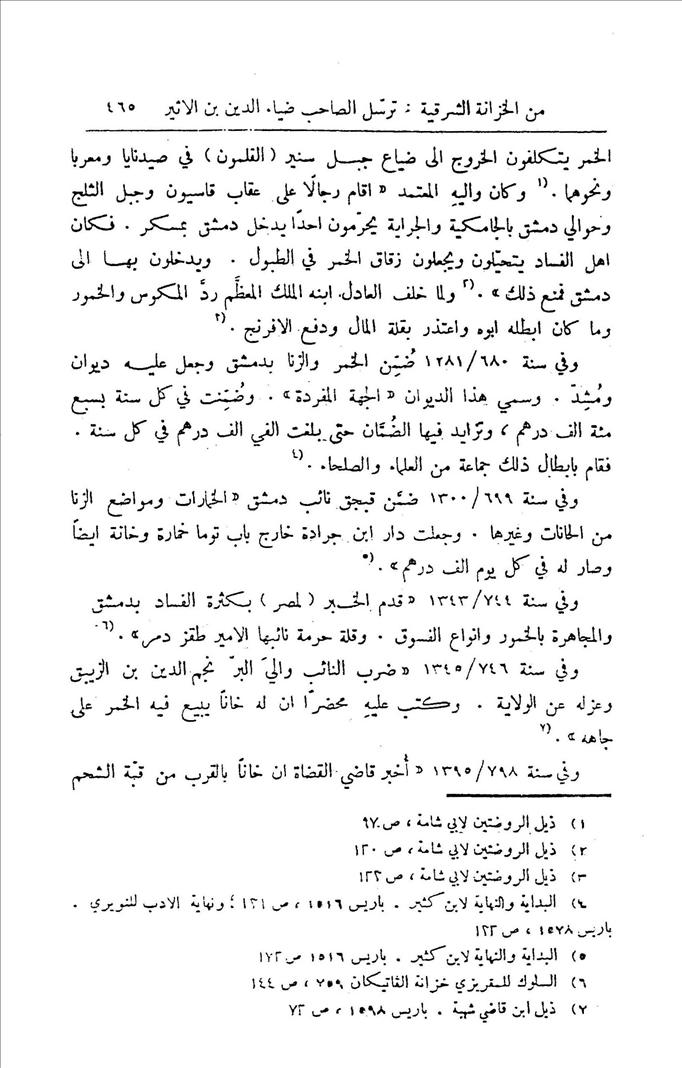 من الخزانة الشرقية : ترسّل الصاحب ضياء الدين بن الاثير ٤٦٥
الخمر يتكلفون الخروج الى ضياع جبل سنير (القلمون) في صيدنايا ومعربا
ونحوهما .(١ وكان واليهِ المعتمد « اقام رجالًا على عقاب قاسيون وجبل الثلج
وحوالي دمشق بالجامكية والجراية يحرّمون احدًا يدخل دمشق بمسكر . فكان
اهل الفساد يتحيّلون ويجعلون زقاق الخمر في الطبول . ويدخلون بها الى
دمشق فمنع ذلك » .(٢ ولما خلف العادل ابنه الملك المعظَّم ردَّ المكوس والخمور
وما كان ابطله ابوه واعتذر بقلة المال ودفع الافرنج .(٣
وفي سنة ٦٨٠/١٢٨١ ضُمّن الخمر والزنا بدمشق وجعل عليه ديوان
ومُشِدّ . وسمي هذا الديوان « الجهة المفردة » . وضُمّنت في كل سنة بسبع
مئة الف درهم ، وتزايد فيها الضُمَّان حتى بلغت الفي الف درهم في كل سنة .
فقام بابطال ذلك جماعة من العلماء والصلحاء .(٤
وفي سنة ٦٩٩/١٣٠٠ ضمَّن قبجق نائب دمشق « الخمارات ومواضع الزنا
من الحانات وغيرها . وجعلت دار ابن جرادة خارج باب توما خمارة وخانة ايضاً
وصار له في كل يوم الف درهم » .(٥
وفي سنة ٧٤٤/١٣٤٣ « قدم الخبر (لمصر) بكثرة الفساد بدمشق
والمجاهرة بالخمور وانواع الفسوق . وقلة حرمة نائبها الامير طقز دمر» .(٦
وفي سنة ٧٤٦/١٣٤٥ « ضرب النائب واليَ البرّ نجم الدين بن الزيبق
وعزله عن الولاية . وكتب عليهِ محضرًا ان له خانًا يبيع فيه الخمر على
جاهه » .(٧
وفي سنة ٧٩٨/١٣٩٥ « أُخبر قاضي القضاة ان خانًا بالقرب من قبّة الشحم
١) ذيل الروضتين لابي شامة ، ص ٩٧
٢) ذيل الروضتين لابي شامة ، ص ١٢٠
٣) ذيل الروضتين لابي شامة ، ص ١٢٢
٤) البداية والنهاية لابن كثير . باريس ١٥١٦ ، ص ١٢١ ؛ ونهاية الادب للنويري .
باريس ١٥٧٨ ، ص ١٢٢
٥) البداية والنهاية لابن كثير . باريس ١٥١٦ ص ١٧٢
٦) السلوك للمقريزي خزانة الفاتيكان ٧٥٩ ، ص ١٤٤
٧) ذيل ابن قاضي شهبة . باريس ١٥٩٨ ، ص ٧٢